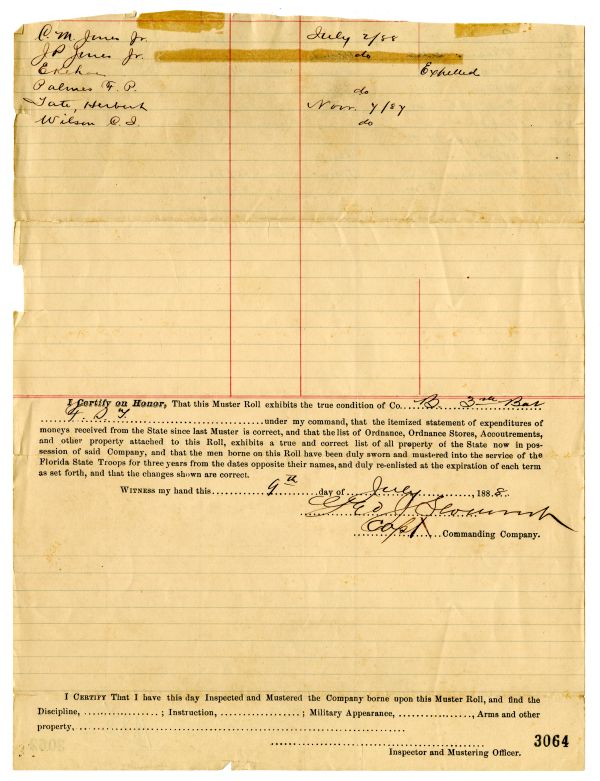 C. M Jones Jr. July 2/88
J P Jones Jr. do
Expelled
Palmes F. P. do
Tate, Herbert Nov. 7/87
Wilson C. I do
I Certify on Honor, That this Muster Roll exhibits the true condition of Co. B. 3rd Bat
F. S. T. under my command, that the itemized statement of expenditures of
moneys received from the State since last Muster is correct, and that the list of Ordnance, Ordnance Stores, Accoutrements,
and other property attached to this Roll, exhibits a true and correct list of all property of the State now in pos-
session of said Company, and that the men borne on this Roll have been duly sworn and mustered into the service of the
Florida State Troops for three years from the dates opposite their names, and duly re-enlisted at the expiration of each term
as set forth, and that the changes shown are correct.
Witness my hand this 9th day of July, 1888.
Geo
Capt Commanding Company.
I Certify That I have this day Inspected and Mustered the Company borne upon this Muster Roll, and find the
Discipline, ; Instruction, ; Military Appearance, , Arms and other
property,
3064
Inspector and Mustering Officer.